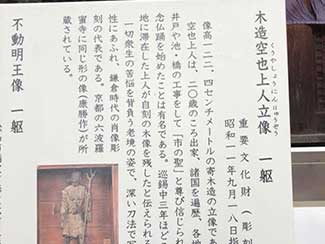 くうやしょうにんりゅうぞう
木造空也上人立像 一躯
重要文化財（彫刻
昭和一一年九月一八日指
像高一二二．四センチメートルの寄木造の立像であ
空也上人は、二〇歳のころ出家、諸国を遍歴、各地
井戸や池・橋の工事をして「市の聖」と尊び信じられ
念仏踊を始めたことは有名である。巡錫中三年ほど
地に滞在した上人が自刻の木像を残したと伝えられる
一切衆生の苦悩を背負う老境の姿で、深い刀法で写
性にあふれ、鎌倉時代の肖像彫
刻の代表である。京都の六波羅
蜜寺に同じ形の像（康勝作）が所
蔵されている。
不動明王像 一躯